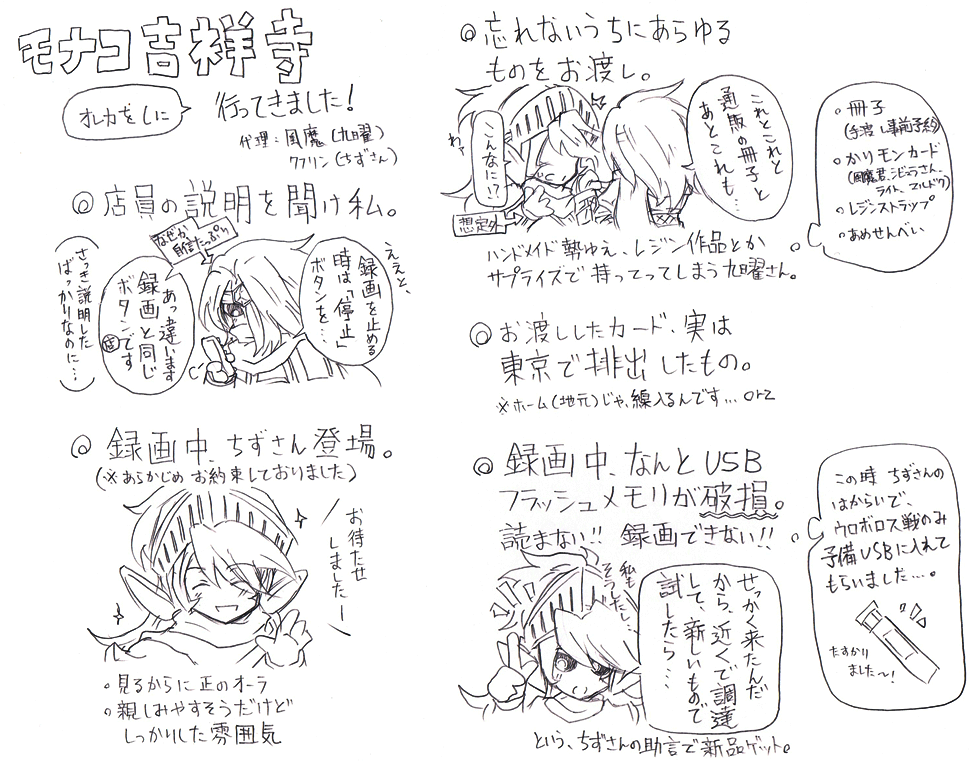 モナコ吉祥寺
オレカをしに
行ってきました!
代理:風魔(九曜)
クフリン(ちずさん)
◎店員の説明を聞け私。
なぜか
自信たっぷり
ええと、
録画を止める
時は「停止」
ボタンを…
あっ違います
録画と同じ
ボタンです
(さっき説明した
ばっかりなのに…)
◎録画中、ちずさん登場。
(※あらかじめお約束しておりました)
お待たせ
しましたー
○見るからに正のオーラ
○親しみやすそうだけど
しっかりした雰囲気
◎忘れないうちにあらゆる
ものをお渡し。
これとこれと
通販の冊子と
あとこれも…
こんなに!?
わァ
想定外
○冊子
○かりモンカード
○レジンストラップ
○あめせんべい
ハンドメイド勢ゆえ、レジン作品とか
サプライズで持ってってしまう九曜さん。
◎お渡ししたカード、実は
東京で排出したもの。
※ホーム(地元)じゃ、線入るんです…orz
◎録画中、なんとUSB
フラッシュメモリが破損。
読まない!!録画できない!!
この時ちずさんの
はからいで、
ウロボロス戦のみ
予備USBに入れて
もらいました…。
たすかり
ました〜!
私も
そうしたし…
せっかく来たんだ
から、近くで調達
して、新しいもので
試したら…
という、ちずさんの助言で新品ゲット。